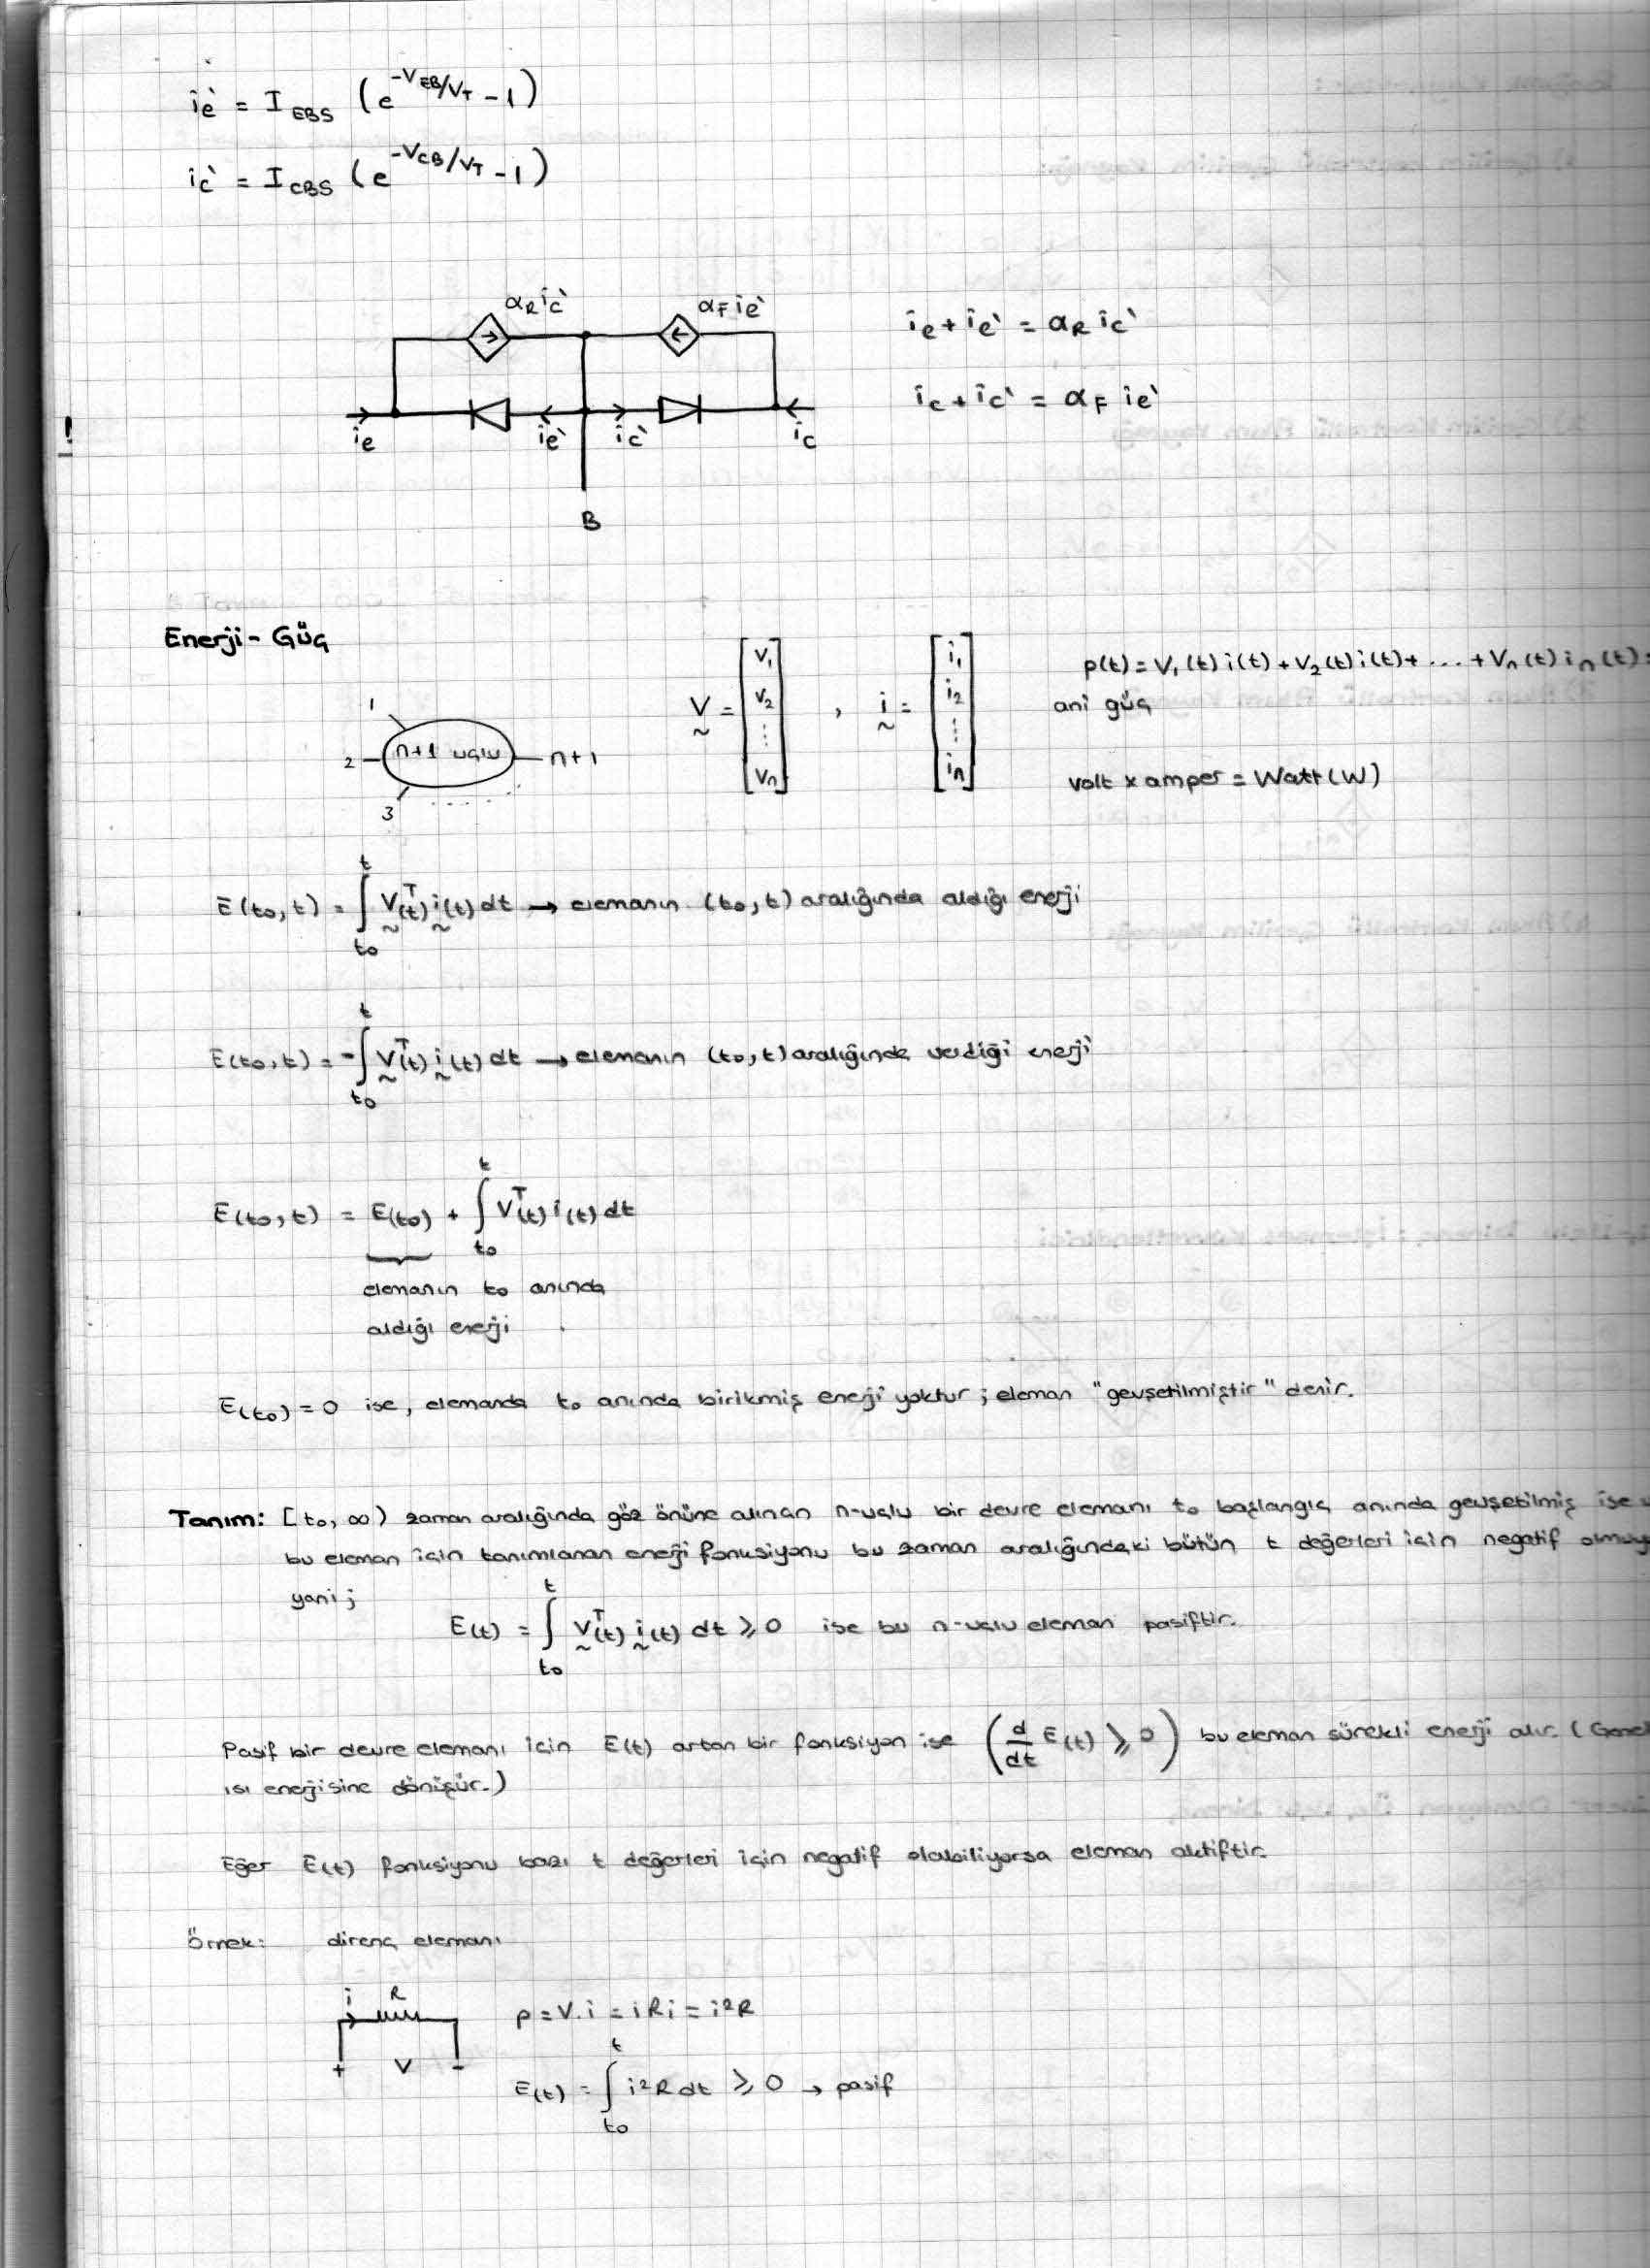 ie` = I EBS (e^(-VEB/VT) - 1)
ic` = I CBS (e^(-VCB/VT) - 1)
αR ic` αF ie`
ie + ie` = αR ic`
ic + ic` = αF ie`
!
ie ie` ic` ic
B
Enerji - Güç
1
2 n+1 uçlu n+1
3
V = [V1 V2 ⋮ Vn] , i = [i1 i2 ⋮ in]
p(t) = V1(t) i(t) + V2(t) i(t) + ... + Vn(t) in(t) =
ani güç
volt x amper = Watt (W)
E(to,t) = ∫_to^t V^T(t) i(t) dt → elemanın (to,t) aralığında aldığı enerji
E(to,t) = -∫_to^t V^T(t) i(t) dt → elemanın (to,t) aralığında verdiği enerji
E(to,t) = E(to) + ∫_to^t V^T(t) i(t) dt
elemanın to anında
aldığı enerji
E(to) = 0 ise, elemanda to anında birikmiş enerji yoktur ; eleman "gevşetilmiştir" denir.
Tanım: [to, ∞) zaman aralığında göz önüne alınan n-uçlu bir devre elemanı to başlangıç anında gevşetilmiş ise
bu eleman için tanımlanan enerji fonksiyonu bu zaman aralığındaki bütün t değerleri için negatif
yani ;
E(t) = ∫_to^t V^T(t) i(t) dt ≥ 0 ise bu n-uçlu eleman pasiftir.
Pasif bir devre elemanı için E(t) artan bir fonksiyon ise (d/dt E(t) ≥ 0) bu eleman sürekli enerji alır. (Genel
ısı enerjisine dönüşür.)
Eğer E(t) fonksiyonu bazı t değerleri için negatif olabiliyorsa eleman aktiftir.
Örnek: direnç elemanı
i R
+ V -
p = V.i = iRi = i²R
E(t) = ∫_to^t i²R dt ≥ 0 → pasif